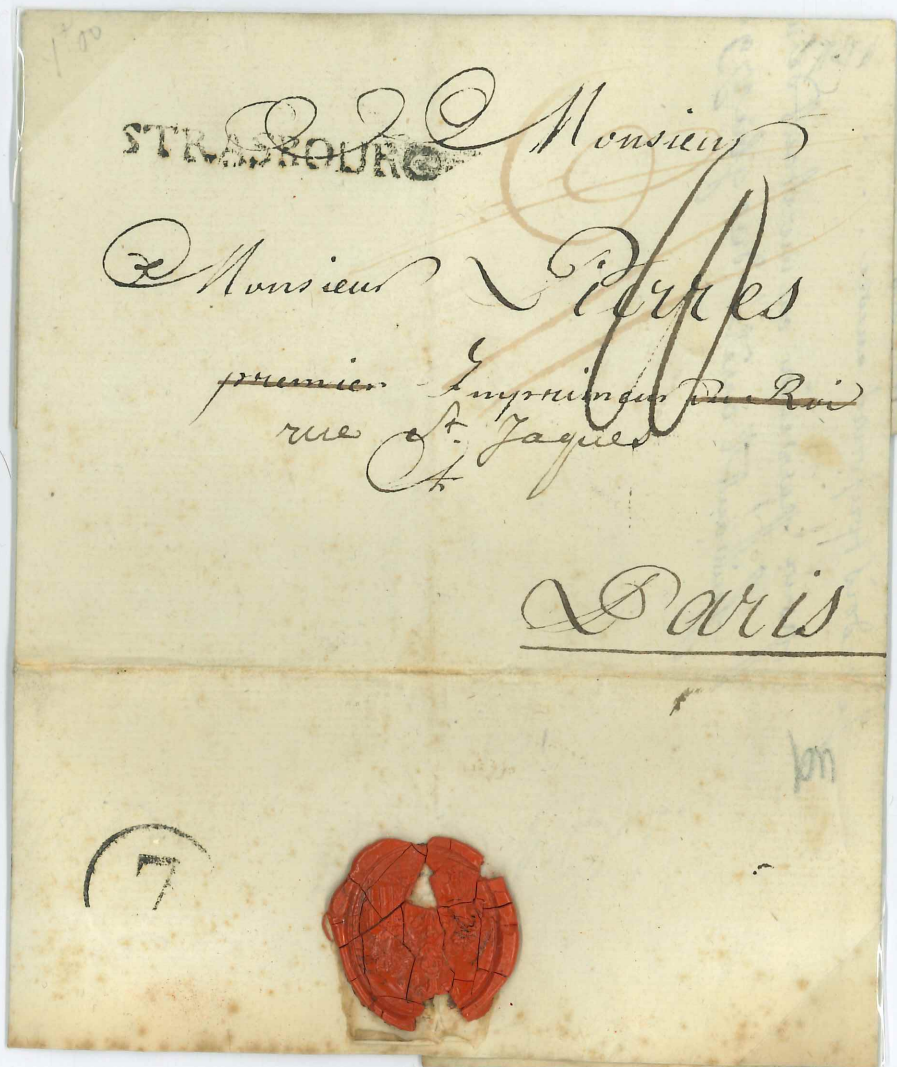 STRASBOURG
Monsieur
Monsieur Pierres
premier Imprimeur du Roi
rue St. Jaques
Paris
7